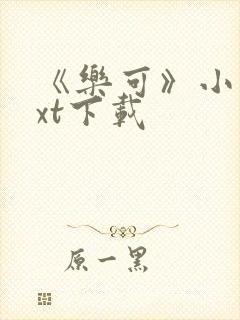 《樂可》小
xt下載
原一黑